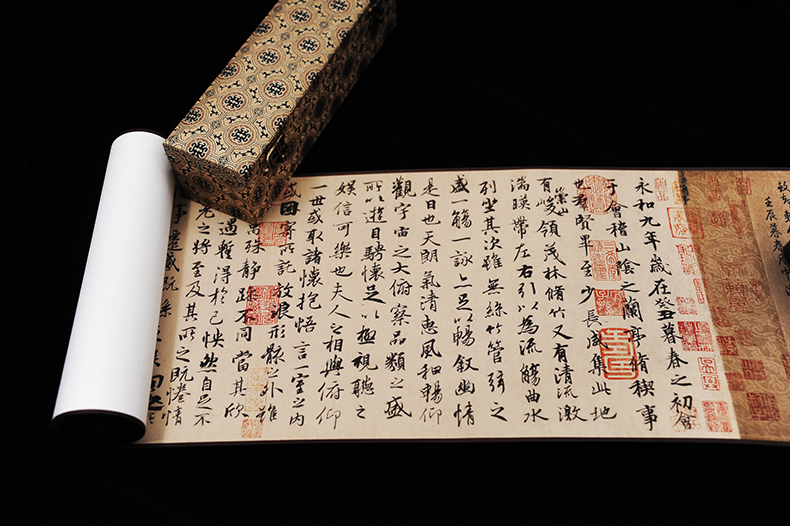 壬辰暮春
永和九年歲在癸丑暮春之初會
于會稽山陰之蘭亭脩稧事
也羣賢畢至少長咸集此地
有崇山峻領茂林脩竹又有清流激
湍暎帶左右引以為流觴曲水
列坐其次雖無絲竹管弦之
盛一觴一詠亦足以暢敘幽情
是日也天朗氣清惠風和暢仰
觀宇宙之大俯察品類之盛
所以遊目騁懷足以極視聽之
娛信可樂也夫人之相與俯仰
一世或取諸懷抱悟言一室之內
或因寄所託放浪形骸之外雖
萬殊静躁不同當其欣
遇暫得於己怏然自足不
老之將至及其所之既惓情
事遷感慨係向之